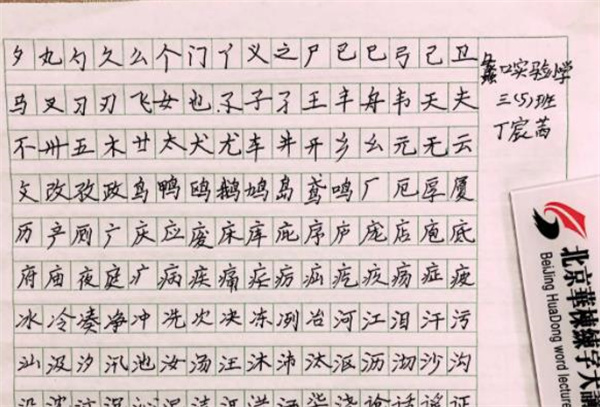 夕丸勺久么个门丫义之尸已巳弓己卫
马叉习刃飞女也孑子孓王丰舟韦天夫
不卅五木廿太犬尤车井开乡幺元无云
文改孜政鸟鸭鸥鹅鸠岛鸢鸣厂厄厚厦
历产厕广庆应废床库庇序庐庞店庖底
府庙夜庭疒病疾痛症疠疝疙疫疡症疲
冰冷凑净冲冼次决冻冽冶河江泪汗污
汕汲汐汛池汝汤汪沐沛汰沤沥沏沙沟
口实验小学
三(5)班
丁宸
北京華棟練字大講
BeiJing HuaDong word lecture